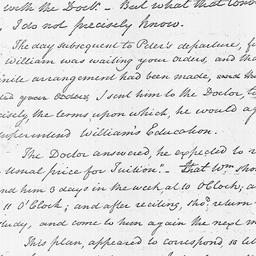 with the Doctr. - But what that
I do not precisely know.
The day subsequent to Peter's departure,
William was waiting your orders, and
arrangement had been made,
your orders, I sent him to the Doctor to
the terms upon which, he would
superintend William's Education.
The Doctor answered, he expected to
usual price for Tuition. - that Wm. sho
him 3 days in the week, at 10 O'Clock;
11 O'Clock; and after reciting, shd. return
study, and come to him again the next
This plan, appeared to correspond so